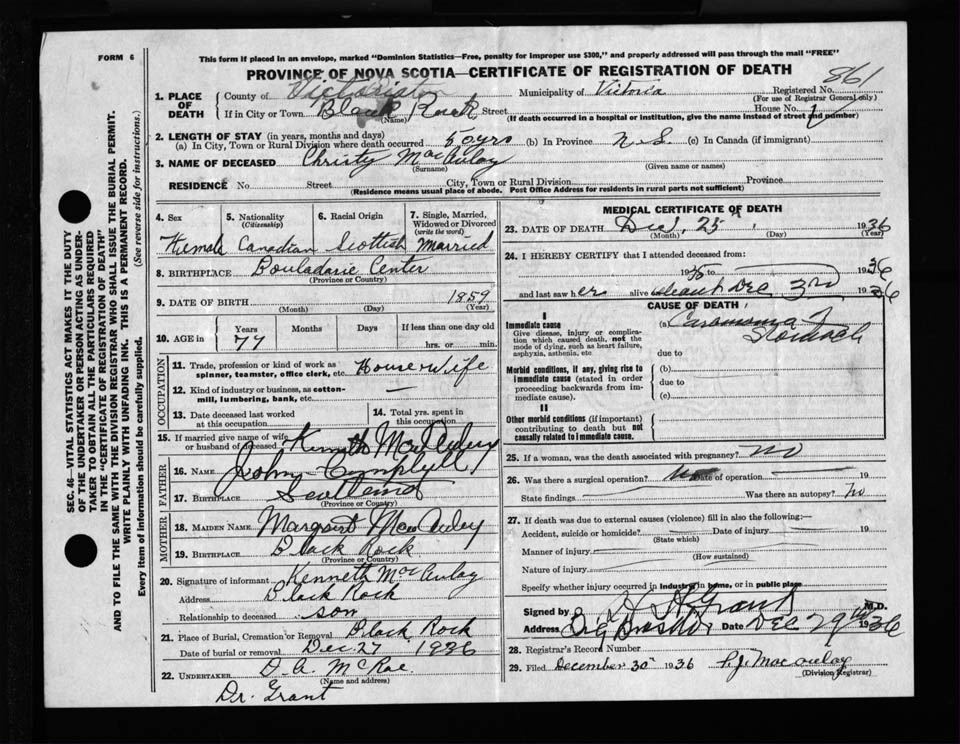 FORM 6
This form if placed in an envelope, marked "Dominion Statistics—Free, penalty for improper use $300," and properly addressed will pass through the mail "FREE"
PROVINCE OF NOVA SCOTIA—CERTIFICATE OF REGISTRATION OF DEATH
861
SEC. 46—VITAL STATISTICS ACT MAKES IT THE DUTY
OF THE UNDERTAKER OR PERSON ACTING AS UNDER-
TAKER TO OBTAIN ALL THE PARTICULARS REQUIRED
IN THE "CERTIFICATE OF REGISTRATION OF DEATH"
AND TO FILE THE SAME WITH THE DIVISION REGISTRAR WHO SHALL ISSUE THE BURIAL PERMIT.
WRITE PLAINLY WITH UNFADING INK. THIS IS A PERMANENT RECORD.
Every item of information should be carefully supplied. (See reverse side for instructions.)
1. PLACE OF DEATH County of Victoria Municipality of Victoria Registered No.
(For use of Registrar General only)
If in City or Town Black Rock Street House No.
(Name) (If death occurred in a hospital or institution, give the name instead of street and number)
2. LENGTH OF STAY (in years, months and days)
(a) In City, Town or Rural Division where death occurred 50 yrs (b) In Province N.S. (c) In Canada (if immigrant)
3. NAME OF DECEASED Christy MacAulay
(Surname) (Given name or names)
RESIDENCE No Street City, Town or Rural Division Province
(Residence means usual place of abode. Post Office Address for residents in rural parts not sufficient)
4. Sex 5. Nationality 6. Racial Origin 7. Single, Married,
(Citizenship) Widowed or Divorced
(write the word)
Female Canadian Scottish Married
8. BIRTHPLACE Bouladarie Center
(Province or Country)
9. DATE OF BIRTH 1859
(Month) (Day) (Year)
10. AGE in Years Months Days If less than one day
77 hrs. or min.
OCCUPATION
11. Trade, profession or kind of work as
spinner, teamster, office clerk, etc. Housewife
12. Kind of industry or business, as cotton-
mill, lumbering, bank, etc. —
13. Date deceased last worked
at this occupation
14. Total yrs. spent in
this occupation
15. If married give name of wife
or husband of deceased Kenneth MacAuley
FATHER
16. NAME John Campbell
17. BIRTHPLACE Scotland
(Province or Country)
MOTHER
18. MAIDEN NAME Margaret MacAuley
19. BIRTHPLACE Black Rock
(Province or Country)
20. Signature of informant Kenneth MacAulay
Address Black Rock
Relationship to deceased son
21. Place of Burial, Cremation or Removal Black Rock
Date of burial or removal Dec 27 1936
22. UNDERTAKER D.A. McRae
(Name and address)
Dr. Grant
MEDICAL CERTIFICATE OF DEATH
23. DATE OF DEATH Dec. 25 1936
(Month) (Day) (Year)
24. I HEREBY CERTIFY that I attended deceased from:
19 to 1936
and last saw her alive about Dec 3rd, 1936
CAUSE OF DEATH
I
Immediate cause
Give disease, injury or complica-
tion which caused death, not the
mode of dying, such as heart failure,
asphyxia, asthenia, etc
(a) Carcinoma of
Stomach
due to
Morbid conditions, if any, giving rise to
immediate cause (stated in order
proceeding backwards from im-
mediate cause).
(b)
due to
(c)
II
Other morbid conditions (if important)
contributing to death but not
causally related to immediate cause.
25. If a woman, was the death associated with pregnancy? no
26. Was there a surgical operation? no Date of operation 19
State findings Was there an autopsy? no
27. If death was due to external causes (violence) fill in also the following:—
Accident, suicide or homicide? Date of injury 19
(State which)
Manner of injury
(How sustained)
Nature of injury
Specify whether injury occurred in industry, in home, or in public place
Signed by Grant M.D.
Address Big Bras d'Or Date Dec 29th 1936
28. Registrar's Record Number
29. Filed December 30 1936 P.J. MacAulay
(Division Registrar)